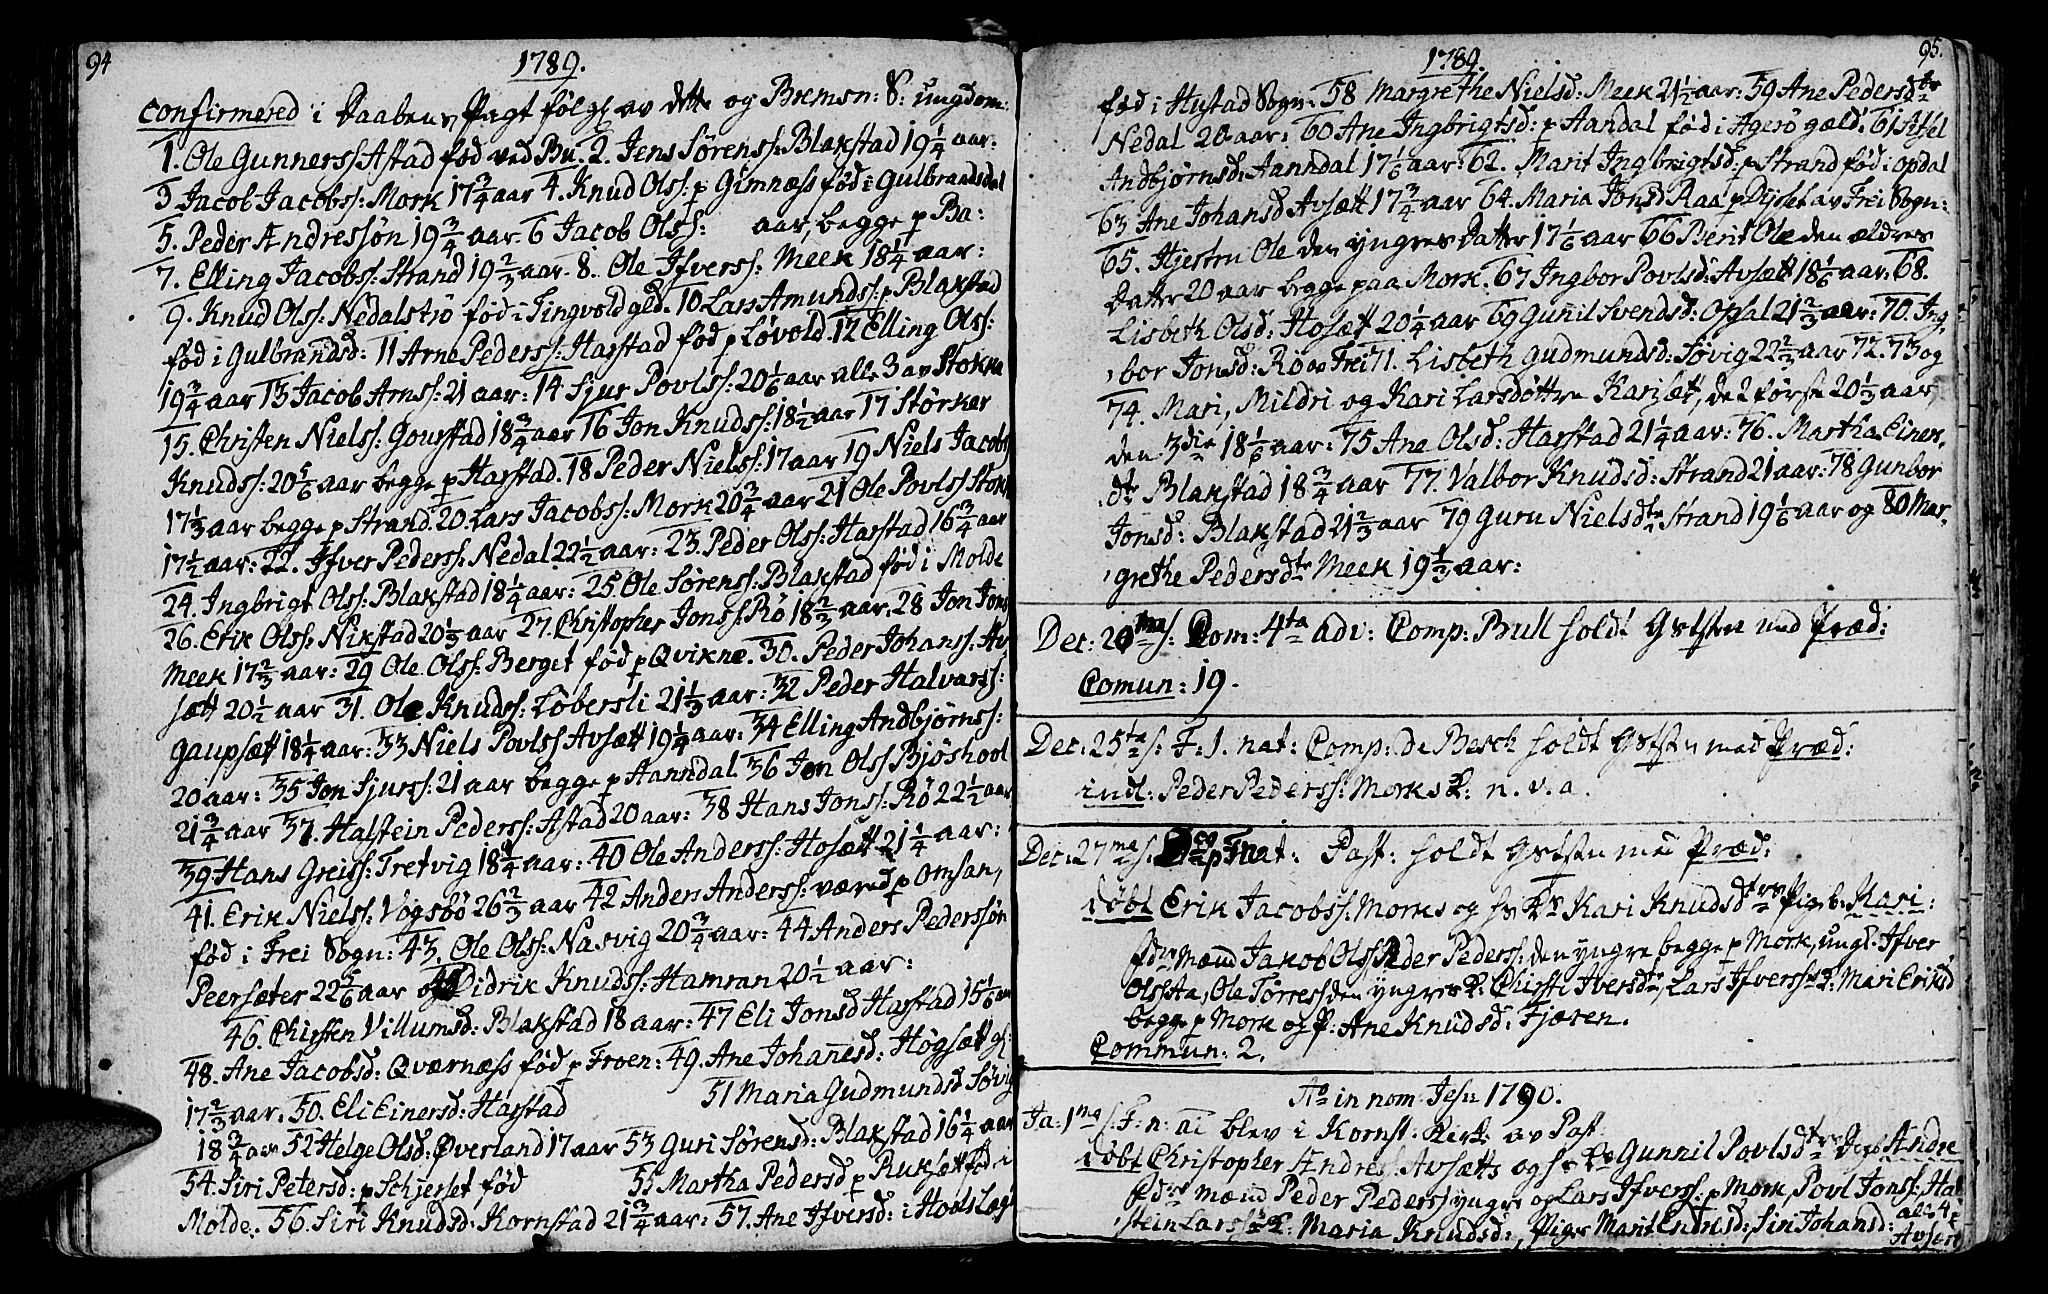 94
1789.
confirmered i Daabens Pagt følg av dette og Bremsn: S: ungdom:
1. Ole Gunnerss Astad fød ved Bu. 2. Jens Sørenss: Blakstad 19 1/4 aar:
3 Jacob Jacobss: Mork 17 3/4 aar 4. Knud Olss: p Gimness fød i Gulbrandsdal
5. Peder Andressøn 19 3/4 aar. 6 Jacob Olss: aar, begge p Ba:
7. Elling Jacobss: Strand 19 2/3 aar. 8. Ole Ifverss: Meek 18 1/4 aar:
9. Knud Olss: Nedalstrø fød i Tingvold gld. 10 Lars Amundss: p Blakstad
fød i Gulbrandsd: 11 Arne Pederss: Harstad fød p Løvold. 12 Elling Olss:
19 3/4 aar 13 Jacob Arnss: 21 aar: 14 Sjur Povlss: 20 1/6 aar alle 3 av Stokke
15. Christen Nielss: Gourstad 18 3/4 aar 16 Jon Knudss: 18 1/2 aar 17 Størker
Knudss: 20 5/6 aar begge p Harstad. 18 Peder Nielss: 17 aar 19 Niels Jacobs
17 1/3 aar begge p Strand. 20. Lars Jacobss: Mork 20 3/4 aar 21 Ole Povlss Stok
17 1/2 aar: 22. Ifver Pederss: Nedal 22 1/2 aar: 23. Peder Olss: Harstad 16 3/4 aar
24. Ingbrigt Olss: Blakstad 18 1/4 aar: 25. Ole Sørenss: Blakstad fød i Molde
26. Erik Olss: Nikstad 20 1/3 aar 27. Christopher Jonss: Rø 18 2/3 aar. 28 Jon Jons
Meek 17 2/3 aar: 29 Ole Olss: Berget fød p Qvikne. 30. Peder Johanss: Av
sætt 20 1/2 aar 31. Ole Knudss: Løbersli 21 1/3 aar: 32 Peder Halvarss:
Gaupsætt 18 1/4 aar: 33 Niels Povlss Avsætt 19 1/4 aar: 34 Elling Andbjørnss:
20 aar: 35 Jon Sjurss: 21 aar begge p Aanndal. 36 Jon Olss Bjøshool
21 3/4 aar 37. Halstein Pederss: Astad 20 aar: 38 Hans Jonss: Rø 22 1/2 aar
39 Hans Greiss: Tretvig 18 3/4 aar: 40 Ole Anderss: Hosætt 21 1/4 aar:
41. Erik Nielss: Vogsbø 26 2/3 aar 42 Anders Anderss: værend p Omsan,
fød i Frei Sogn: 43. Ole Olss: Nasvig 20 3/4 aar: 44 Anders Pederssøn
Peersæter 22 5/6 aar og Didrik Knudss: Hamran 20 1/2 aar:
46. Chirsten Villumsd: Blakstad 18 aar: 47 Eli Jonsd Harstad 15 1/6 aar
48. Ane Jacobsd: Qværness fød p Froen: 49. Ane Johannesd: Høgsætt
17 2/3 aar: 50. Eli Einersd: Harstad 51 Maria Gudmundsd Søvig
18 3/4 aar 52 Helge Olsd: Øverland 17 aar 53 Guri Sørensd: Blakstad 16 1/4 aar
54. Siri Petersd: p Schjerset fød 55 Martha Pedersd p Ruksætt fød i
Molde. 56. Siri Knudsd: Kornstad 21 3/4 aar: 57. Ane Ifversd: i Hools Læg
95.
1789.
fød i Hustad Sogn: 58 Margrethe Nielsd: Meek 21 1/2 aar: 59 Ane Pedersdtr
Nedal 20 aar: 60 Ane Ingbrigtsd: p Aandal fød i Agerø gæld: 61 Atjel
Andbjørnsd: Aanndal 17 1/6 aar: 62. Marit Ingbrigtsd: p Strand fød i Opdal
63 Ane Johansd Avsætt 17 3/4 aar 64. Maria Jonsd Raa p av Frei Sogn:
65. Hjestru Ole den yngres Datter 17 1/6 aar 66 Berit Ole den ældres
Datter 20 aar begge paa Mork. 67 Ingbor Povlsd: Avsætt 18 1/6 aar: 68.
Lisbeth Olsd: Hosætt 20 1/4 aar 69 Gunil Svendsd: Opdal 21 2/3 aar: 70. Ing
bor Jonsd: Rø av Frei 71. Lisbeth Gudmundsd: Søvig 22 2/3 aar 72. 73 og
74. Mari, Mildri og Kari Larsdøttre Karisætt, de 2 første 20 1/3 aar,
den 3die 18 1/6 aar: 75 Ane Olsd: Harstad 21 1/4 aar: 76. Martha Einers
dtr Blakstad 18 3/4 aar 77. Valbor Knudsd: Strand 21 aar: 78 Gunbor
Jonsd: Blakstad 21 2/3 aar 79 Guru Nielsdtr Strand 19 1/6 aar og 80 Mar,
grethe Pedersdtr Meek 19 1/3 aar:
Dec: 20ma s: Dom: 4ta adv: Comp: Bull holdt Gststen med Præd:
Comun: 19.
Dec: 25ta s: F: 1. nat: Comp: de Besch holdt Gststen med Præd:
indl: Peder Pederss: Morks K: n. v. a.
Dec: 27ma s: p F nat: Past: holdt Gststen med Præd:
døbt Erik Jacobss: Morks og hs K Kari Knudsdtrs Pigeb: Mari:
Fdre mænd Jakob Olss Peder Pederss: den yngre begge p Mork, ungk. Ifver
Olss Sta, Ole Tørress den yngres K: Chirsti Iversdtr, Lars Ifverss K: Mari Eriksd
begge p Mork og P: Ane Knudsd: Fjæren.
Commun: 2.
Ao in nom Jesu 1790.
Ja: 1ma s: F: n: ai blev i Kornst: Kirke av Past:
døbt Christopher Andress: Avsætts og hs K Gunnil Povlsdtrs Andre
Fdre mænd Peder Pederss yngre og Lars Ifverss: p Mork, Povl Jonss: Hal
stein Larss K: Maria Knudsd:, Piger Marit Endresd: Siri Johansd: alle 4
Avsætt